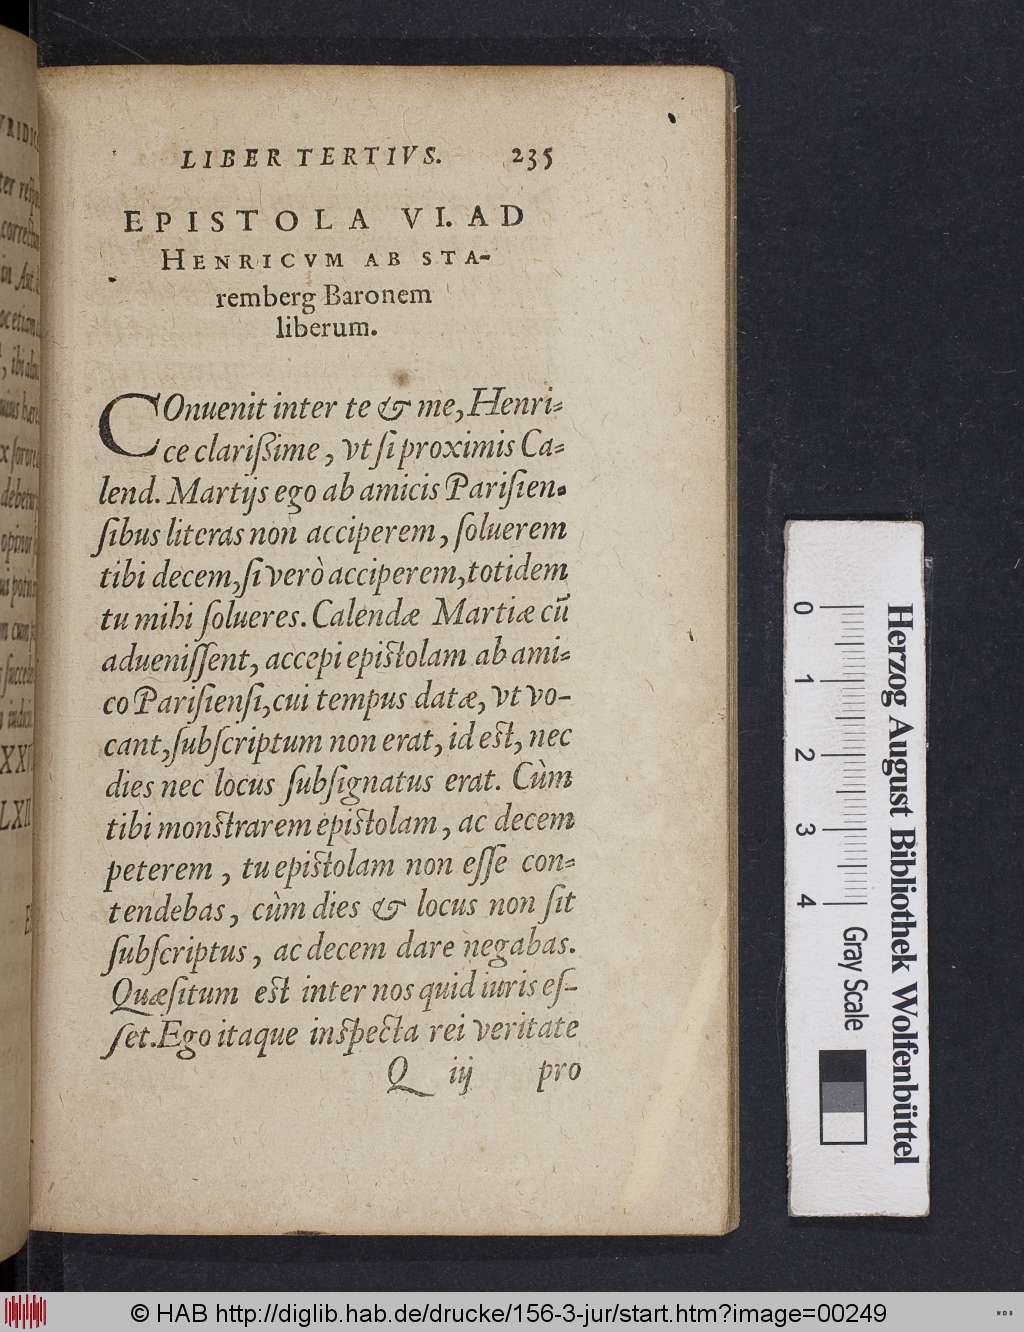 LIBER TERTIVS. 235
EPISTOLA VI. AD
HENRICVM AB STA-
remberg Baronem
liberum.
COnuenit inter te & me, Henri-
ce clarißime, vt ſi proximis Ca-
lend. Martijs ego ab amicis Pariſien-
ſibus literas non acciperem, ſoluerem
tibi decem, ſi verò acciperem, totidem
tu mihi ſolueres. Calendæ Martiæ cū
adueniſſent, accepi epiſtolam ab ami-
co Pariſienſi, cui tempus datæ, vt vo-
cant, ſubſcriptum non erat, id eſt, nec
dies nec locus ſubſignatus erat. Cùm
tibi monſtrarem epiſtolam, ac decem
peterem, tu epiſtolam non eſſe con-
tendebas, cùm dies & locus non ſit
ſubſcriptus, ac decem dare negabas.
Quæſitum eſt inter nos quid iuris eſ-
ſet. Ego itaque inſpecta rei veritate
Q iij pro
0 1 2 3 4 Gray Scale
Herzog August Bibliothek Wolfenbüttel
© HAB http://diglib.hab.de/drucke/156-3-jur/start.htm?image=00249